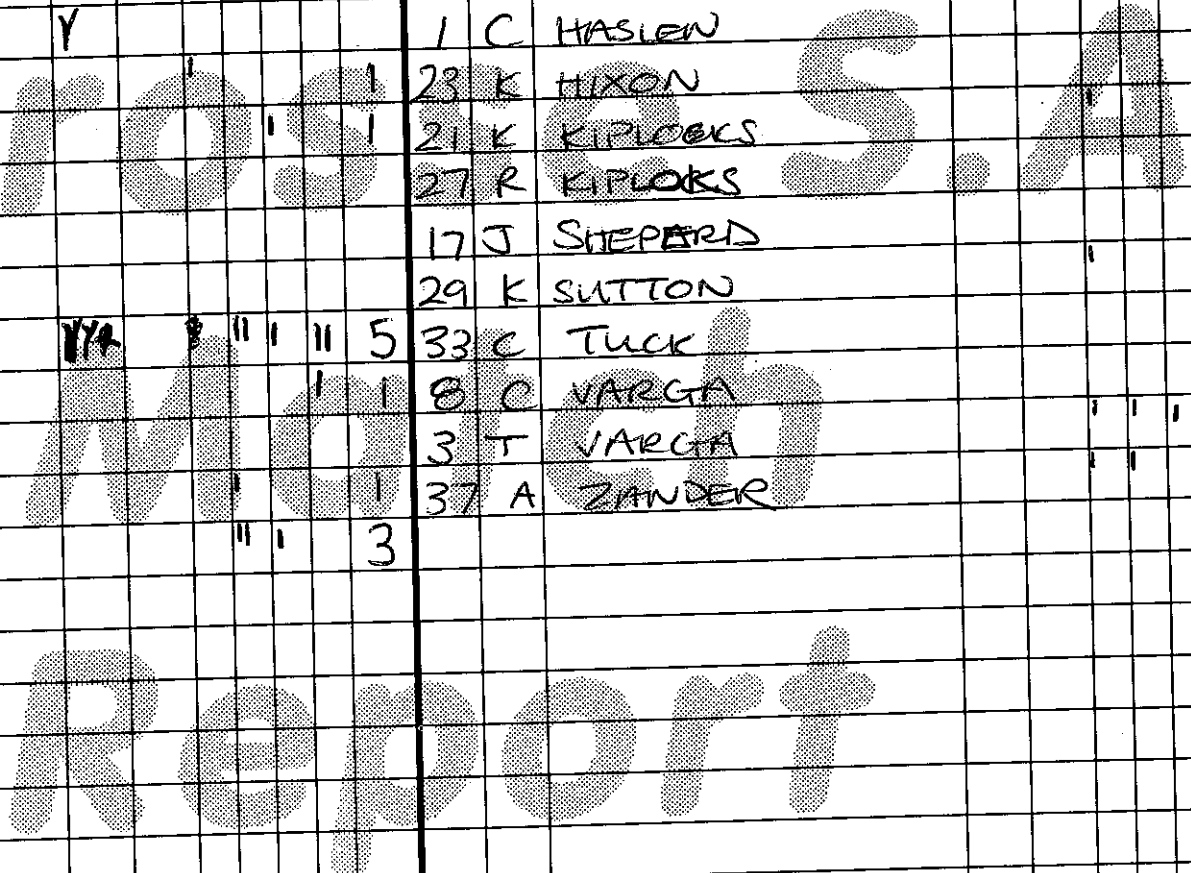 Y 1 C HASLEN
1 23 K HIXON
1 21 K KIPLOCKS
27 R KIPLOKS
17 J SHEPARD
29 K SUTTON
YYR 5 33 C TUCK
1 8 C VARGA
3 T VARGA
1 37 A ZANDER
3
ros e S.A
Match
Report